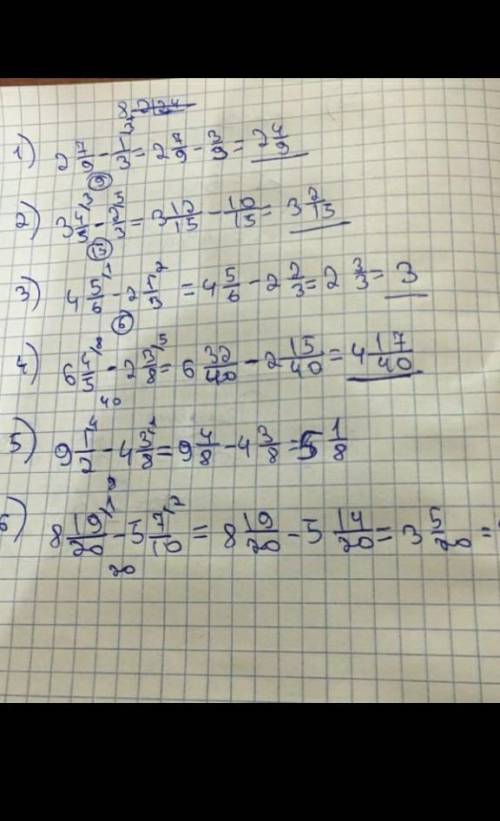 1) 2 7/9 - 1/3 = 2 7/9 - 3/9 = 2 4/9
9
2) 3 4/5 - 2/3 = 3 12/15 - 10/15 = 3 2/15
15
3) 4 5/6 - 2 1/3 = 4 5/6 - 2 2/3 = 2 3/3 = 3
6
4) 6 4/5 - 2 3/8 = 6 32/40 - 2 15/40 = 4 17/40
40
5) 9 1/2 - 4 3/8 = 9 4/8 - 4 3/8 = 5 1/8
6) 8 19/20 - 5 7/10 = 8 19/20 - 5 14/20 = 3 5/20 =
20